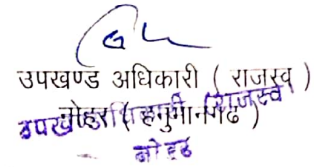 उपखण्ड अधिकारी ( राजस्व )
नोहर ( हनुमानगढ )
उपखण्ड अधिकारी (राजस्व)
नोहर